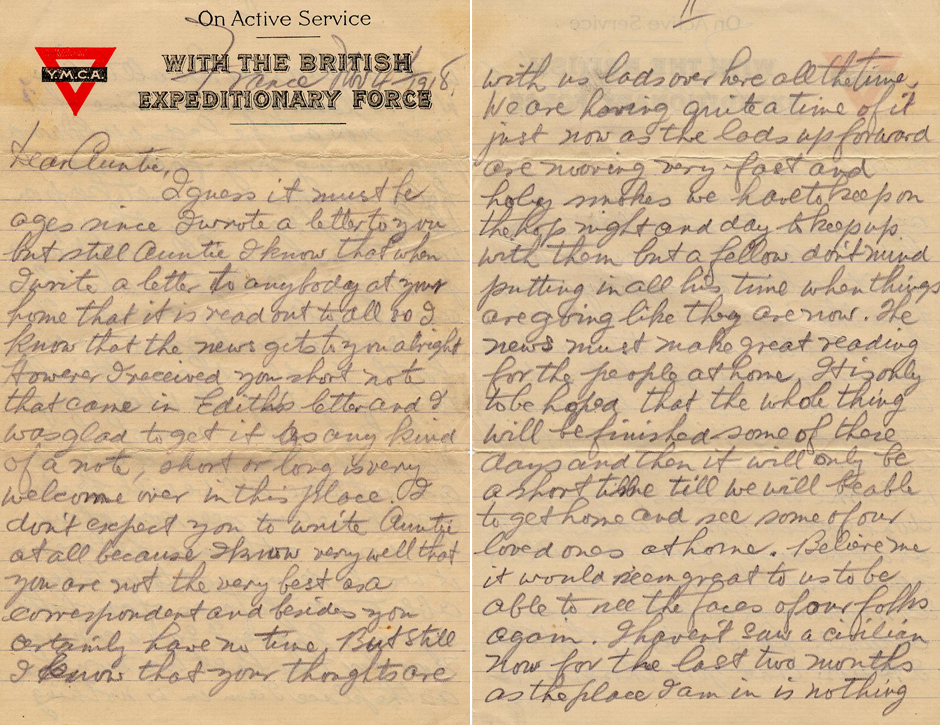 On Active Service
WITH THE BRITISH
EXPEDITIONARY FORCE
Y.M.C.A.
France 1918.
Dear Auntie,
I guess it must be
ages since I wrote a letter to you
but still Auntie I know that when
I write a letter to anybody at your
home that it is read out to all so I
know that the news gets to you alright
However I received you short note
that came in Edith's letter and I
was glad to get it as any kind
of a note, short or long is very
welcome over in this place. I
don't expect you to write Auntie
at all because I know very well that
you are not the very best as a
correspondent and besides you
certainly have no time. But still
I know that your thoughts are
II
with us lads over here all the time.
We are having quite a time of it
just now as the lads up forward
are moving very fast and
holey smokes we have to keep on
the hop night and day to keep up
with them but a fellow don't mind
putting in all his time when things
are going like they are now. The
news must make great reading
for the people at home. It is only
to be hoped that the whole thing
will be finished some of these
days and then it will only be
a short time till we will be able
to get home and see some of our
loved ones at home. Believe me
it would seem great to us to be
able to see the faces of our folks
again. I haven't saw a civilian
now for the last two months
as the place I am in is nothing